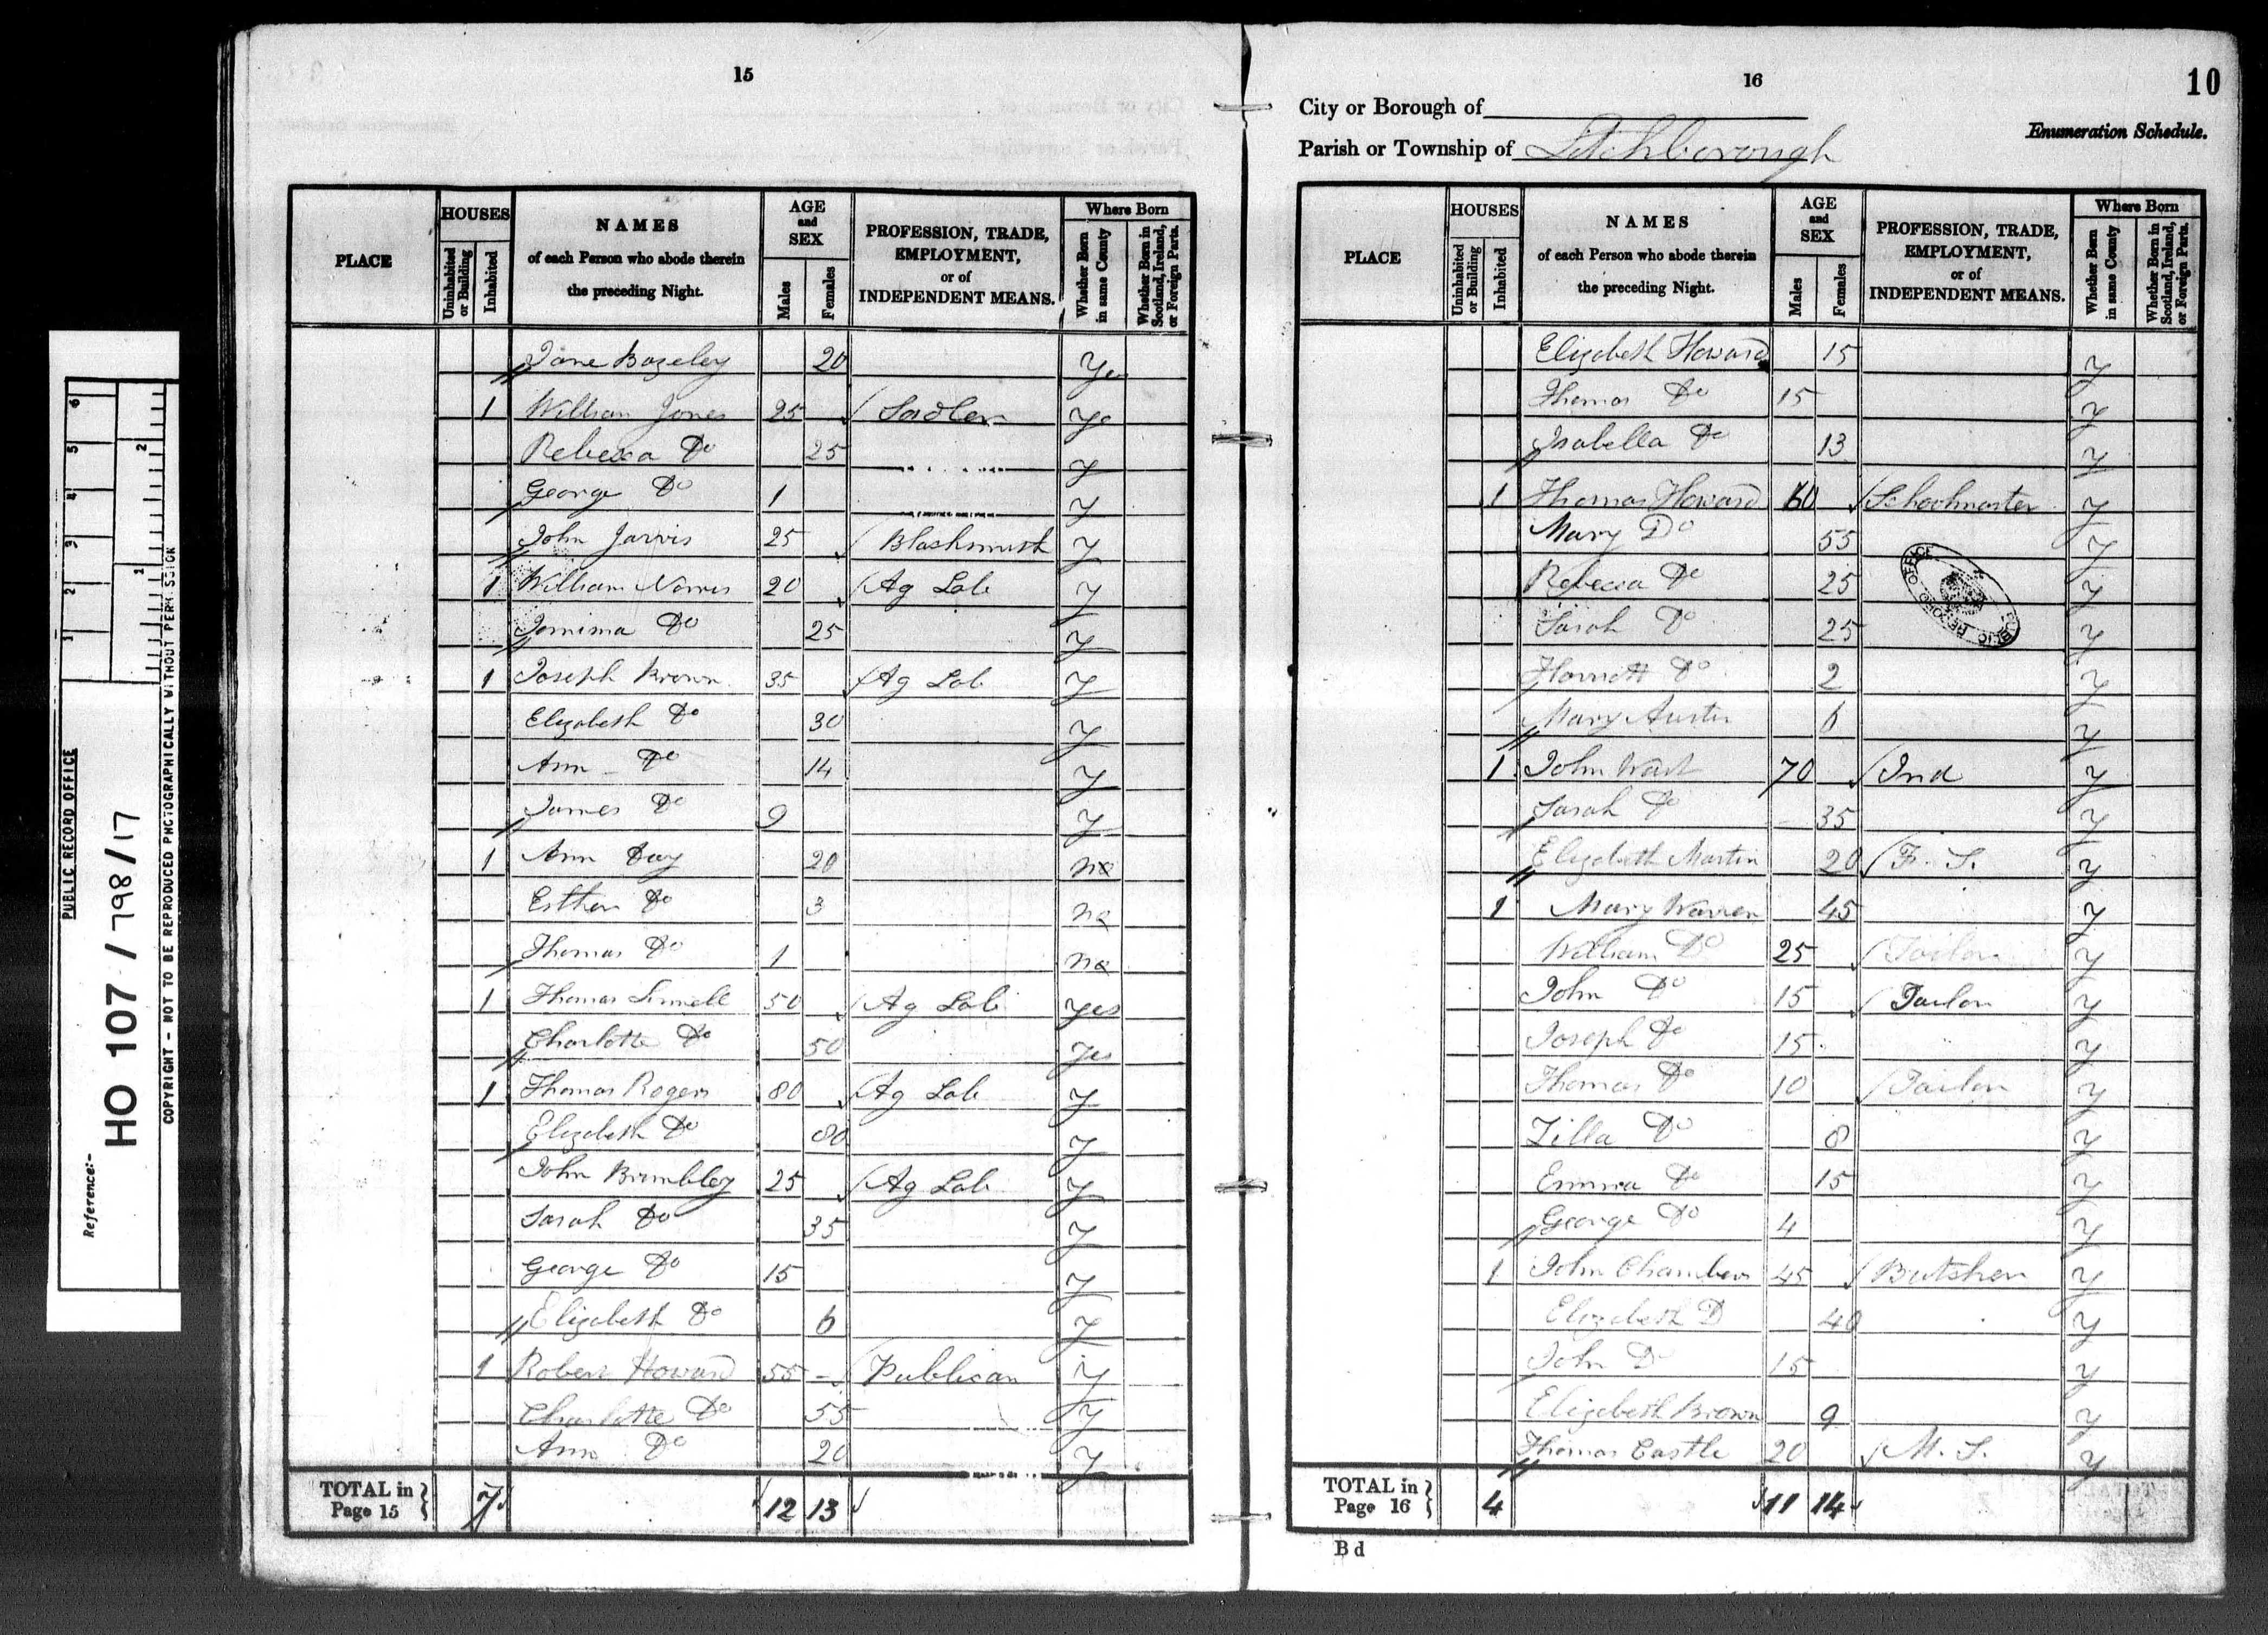 15
PLACE
HOUSES
Uninhabited or Building
Inhabited
NAMES
of each Person who abode therein
the preceding Night.
AGE
and
SEX
Males
Females
PROFESSION, TRADE,
EMPLOYMENT,
or of
INDEPENDENT MEANS.
Where Born
Whether Born in same County
Whether Born in Scotland, Ireland, or Foreign Parts.
Jane Bazeley 20 Yes
1 William Jones 25 Sadler Ye
Rebecca Do 25 y
George Do 1 y
John Jarvis 25 Blacksmith y
1 William Norris 20 Ag Lab y
Jemima Do 25 y
1 Joseph Brown 35 Ag Lab y
Elizabeth Do 30 y
Ann - Do 14 y
James Do 9 y
1 Ann Day 20 no
Esther Do 3 no
Thomas Do 1 no
1 Thomas 50 Ag Lab yes
Charlotte Do 50 yes
1 Thomas Rogers 80 Ag Lab y
Elizabeth Do 80 y
John Brumbley 25 Ag Lab y
Sarah Do 35 y
George Do 15 y
Elizabeth Do 6 y
1 Robert Howard 55 - Publican y
Charlotte Do 55 y
Ann Do 20 y
TOTAL in Page 15 7 12 13
16
10
City or Borough of
Enumeration Schedule.
Parish or Township of Litchborough
PLACE
HOUSES
Uninhabited or Building
Inhabited
NAMES
of each Person who abode therein
the preceding Night.
AGE
and
SEX
Males
Females
PROFESSION, TRADE,
EMPLOYMENT,
or of
INDEPENDENT MEANS.
Where Born
Whether Born in same County
Whether Born in Scotland, Ireland, or Foreign Parts.
Elizabeth Howard 15 y
Thomas Do 15 y
Isabella Do 13 y
1 Thomas Howard 60 Schoolmaster y
Mary Do 55 y
Rebecca Do 25 y
Sarah Do 25 y
Harriett Do 2 y
Mary Austin 6 y
1 John West 70 Ind y
Sarah Do 35 y
Elizabeth Martin 20 F. S. y
1 Mary Warren 45 y
William Do 25 Tailor y
John Do 15 Tailor y
Joseph Do 15 y
Thomas Do 10 Tailor y
Zilla Do 8 y
Emma Do 15 y
George Do 4 y
1 John Chambers 45 Butcher y
Elizabeth D 40 y
John D 15 y
Elizabeth Brown 9 y
Thomas Castle 20 M. S. y
TOTAL in Page 16 4 11 14
B d
PUBLIC RECORD OFFICE
PUBLIC RECORD OFFICE
Reference:-
HO 107/798/17
COPYRIGHT - NOT TO BE REPRODUCED PHOTOGRAPHICALLY WITHOUT PERMISSION
1 2 3 4 5 6
1 2